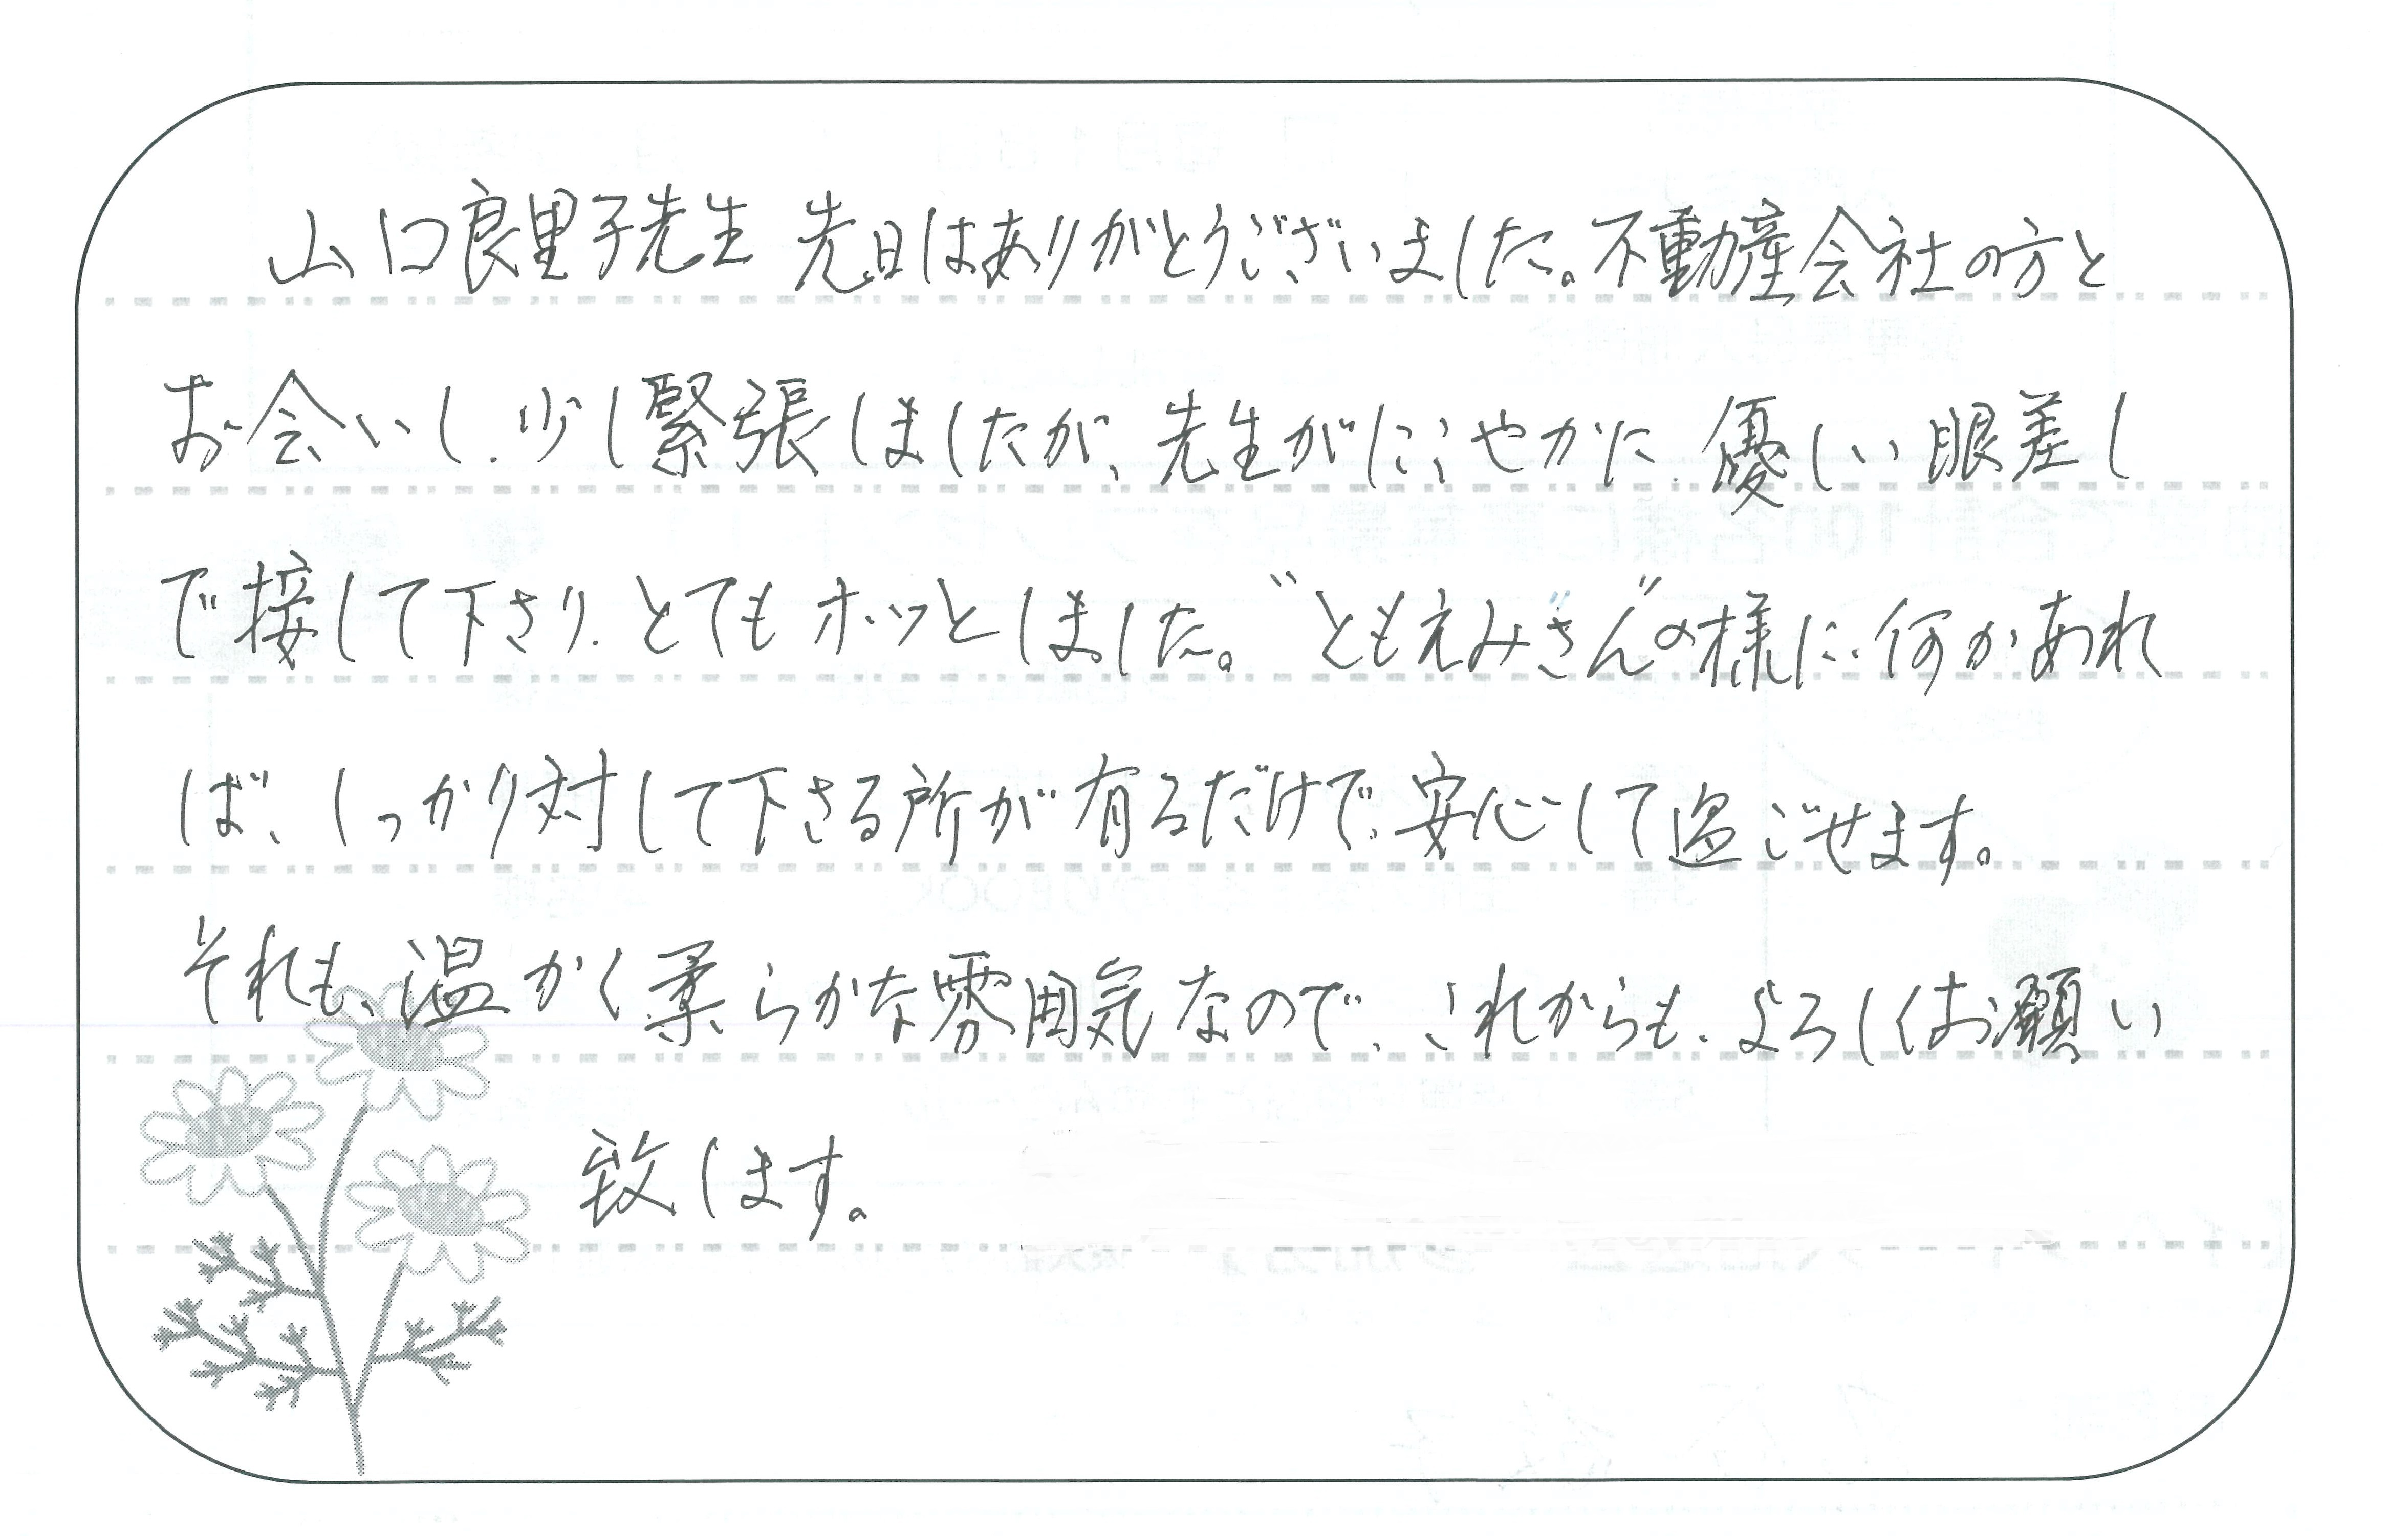 山口良里子先生 先日はありがとうございました。不動産会社の方と
お会いし、少し緊張しましたが、先生がにこやかに、優しい眼差し
で接して下さり、とてもホッとしました。“ともえみさん”の様に、何かあれ
ば、しっかり対して下さる所が有るだけで、安心して過ごせます。
それも、温かく柔らかな雰囲気なので、これからも、よろしくお願い
致します。